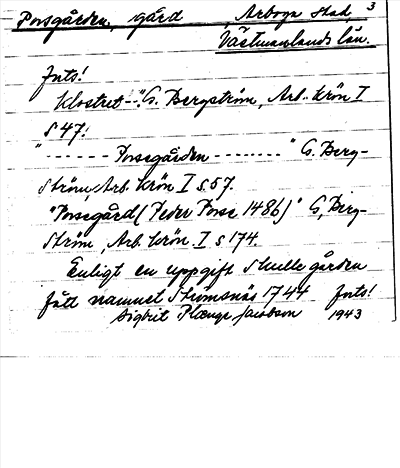 Porsgården, gård Arboga Stad, 3
Västmanlands län.
Forts!
Klostret --". G. Bergström, Arb. krön I
s 47.
"------ Porsegården --------" G. Berg-
ström, Arb. krön I s. 57.
"Porsegård (Peder Porse 1486)" G. Berg-
ström, Arb. krön. I s 174.
Enligt en uppgift skulle gården
fått namnet Strömsnäs 1744 Forts!
Sigbrit Plænge Jacobson 1943